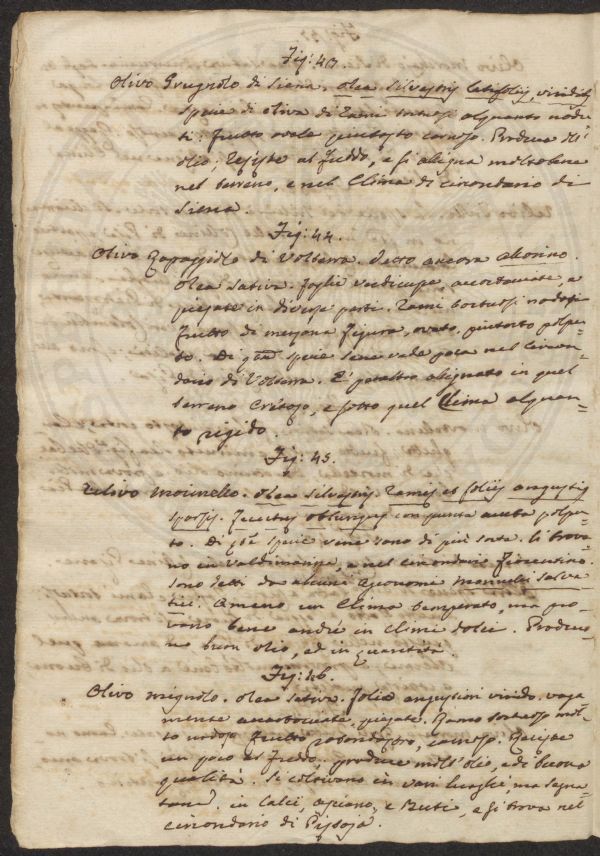 Fig: 43.
Olivo Grugnolo di Siena. olea silvestris latifolia, viridis
specie di oliva di rami tortuosi alquanto nodo-
ti. frutto ovale piuttosto carnoso. Produce dell'
olio, resiste al freddo, e si aligna molto bene
nel terreno, e nel Clima di circondario di
Siena.
Fig: 44.
Olivo Rapaggiolo di Volterra. detto ancora alborino.
Olea sativa. foglie verdicupe, accartocciate, e
piegate in diverse parti. Rami tortuosi nodosi
frutto di mezzana figura, ovato, piutosto polpo-
to. Di qta specie sene vede poca nel Circon-
dario di Volterra. E' peraltro alignato in quel
terreno Cretoso, e sotto quel Clima alquan-
to rigido.
Fig: 45.
Ulivo morinello. Olea silvestris. Ramis et foliis angustis
sparsis. fructus oblungus con punta acuta polpo-
to. Di qta specie vene sono di più sorte. Si trova-
no in Valdinievole, e nel circondario fiorentino.
Sono detti da alcuni Agronomi morinelli salva
tici. Amano un Clima temperato, ma pro-
vano bene anche in Climi dolci. Produco-
no buon olio, ed in quantità.
Fig: 46.
Olivo mignolo. olea sativa. folio angustiori viridi. vaga
mente accartocciate, piegate. Ramo tortuoso mol-
to nodoso frutto rotondastro, carnoso. Resiste
un poco al freddo. produce molt'olio, e di buona
qualità. Si coltivano in vari luoghi, ma segna
tam. in Calci, a piano, e Buti, e si trova nel
circondario di Pistoja.